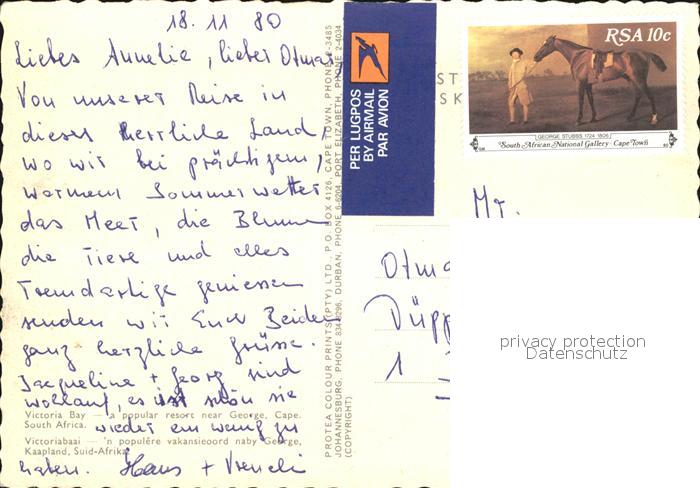 18.11 80
Liebes Annelie, lieber Otmar,
Von unserer Reise in
dieses herrliche Land,
wo wir bei prächtigem,
warmem Sommerwetter
das Meer, die Blumen
die Tiere und alles
Fremdartige geniessen
senden wir Euch Beiden
ganz herzliche Grüsse.
Jacqueline + Georg sind
wohlauf, es ist schön sie
Victoria Bay — a popular resort near George, Cape.
South Africa.
wieder ein wenig zu
Victoriabaai — 'n populêre vakansieoord naby George,
Kaapland, Suid-Afrika.
haben. Hans + Vreneli
PROTEA COLOUR PRINTS (PTY) LTD., P.O. BOX 4126, CAPE TOWN, PHONE 2-3485
JOHANNESBURG, PHONE 834-8296, DURBAN, PHONE 6-6204, PORT ELIZABETH, PHONE 2-4034
(COPYRIGHT)
PER LUGPOS
BY AIRMAIL
PAR AVION
ST
SK
RSA 10c
GEORGE STUBBS 1724-1806
South African National Gallery · Cape Town
Mr.
Otma
Düpp
1
privacy protection
Datenschutz